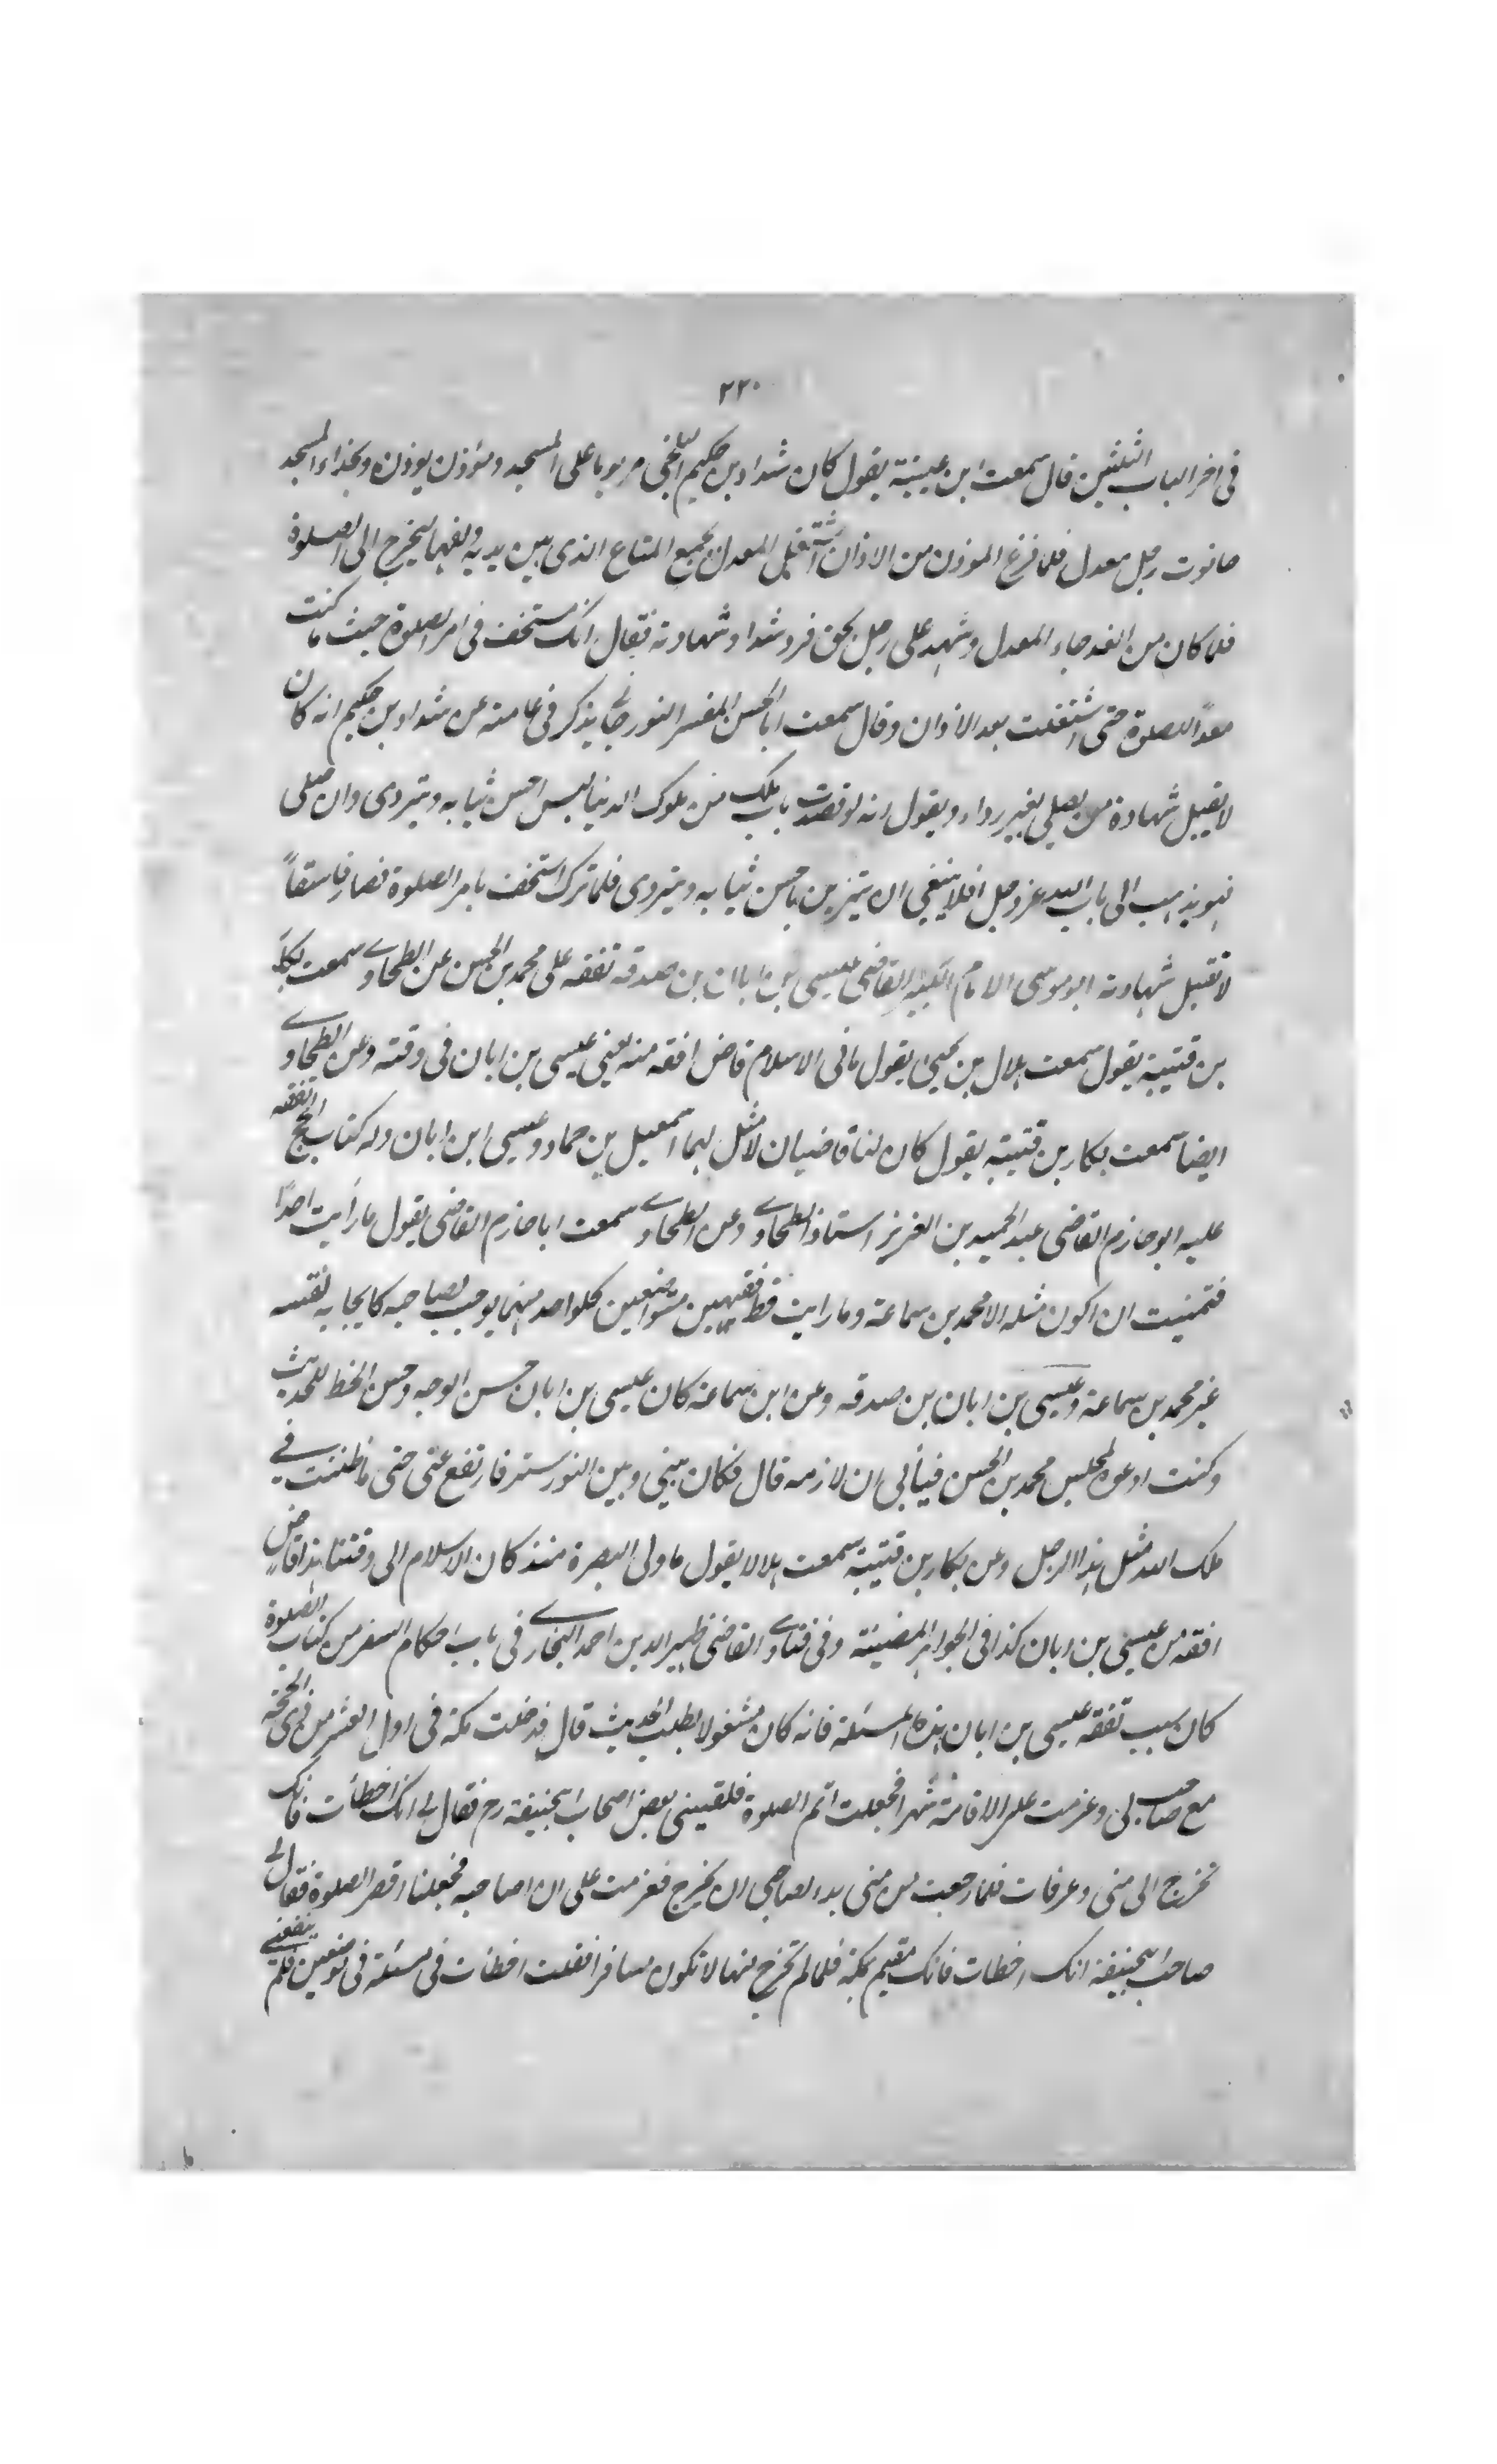 ٢٢٠
فى اخر الباب الثلثين قال سمعت ابن عيينة يقول كان شداد بن حكيم البلخى مر يوما على المسجد ومؤذن يوذن وبحذاء المسجد
حانوت رجل معدل فلما فرغ الموذن من الاذان اشتغل المعدل بجمع المتاع الذى بين يديه ليخرج الى الصلوة
فلما كان من الغد جاء المعدل وشهد على رجل بحق فرد شداد شهادته فقال انك مستخف فى امر الصلوة حيث ما كنت
معدًا للصلوة حتى اشتغلت بعد الاذان وقال سمعت ابا الحسن المفسر يذكر فى عامته عن شداد بن حكيم انه كان
لا يقبل شهادة من يصلى بغير رداء ويقول انه لو قصد باب ملك من ملوك الدنيا لبس احسن ثيابه ويتردى وان صلى
فهو يذهب الى باب الله عز وجل افلا ينبغى ان يتزين باحسن ثيابه ويتردى فلما ترك استخف بامر الصلوة فصار فاسقاً
لا تقبل شهادته ابو موسى الامام الفقيه القاضى عيسى بن ابان بن صدقه تفقه على محمد بن الحسن عن الطحاوى سمعت بكار
بن قتيبة يقول سمعت هلال بن يحيى يقول ما فى الاسلام قاض افقه منه يعنى عيسى بن ابان فى وقته وعن الطحاوى
ايضا سمعت بكار بن قتيبة يقول كان لنا قاضيان لا مثل لهما اسمعيل بن حماد وعيسى ابن ابان وله كتاب الحج تفقه
عليه ابو حازم القاضى عبد الحميد بن العزيز استاذ الطحاوى وعن الطحاوى سمعت ابا حازم القاضى يقول ما رأيت احدًا
فتمنيت ان اكون مثله الا محمد بن سماعة وما رايت قط فقيهين متواضعين كلواحد منهما يوجب لصاحبه كايجابه لنفسه
غير محمد بن سماعة وعيسى بن ابان بن صدقه وعن ابن سماعة كان عيسى بن ابان حسن الوجه وحسن الخط للحديث
وكنت ادعوه لمجلس محمد بن الحسن فيأبى ان لازمه قال فكان بينى وبين النور ستر فارتفع عنى حتى ما ظننت فى
ملك الله مثل هذا الرجل وعن بكار بن قتيبة سمعت هلالا يقول ما ولى البصرة منذ كان الاسلام الى وقتنا هذا قاضٍ
افقه من عيسى بن ابان كذا فى الجواهر المضيئة وفى فتاوى القاضى ظهير الدين احمد البخارى فى باب احكام السفر من كتاب الصلوة
كان سبب تفقه عيسى بن ابان هذه المسئلة فانه كان مشغولا بطلب الحديث قال فدخلت مكة فى اول العشر من ذى الحجة
مع صاحب لى وعزمت على الاقامة شهرا فجعلت اتم الصلوة فلقينى بعض اصحاب ابيحنيفة رح فقال لى انك اخطأت فانك
تخرج الى منى وعرفات فلما رجعت من منى بدء لصاحبى ان يخرج فعزمت على ان اصاحبه فجعلنا اقصر الصلوة فقال لى
صاحب ابيحنيفة انك اخطات فانك مقيم بمكة فلما لم تخرج منها لا تكون مسافرا فقلت اخطات فى مسئلة فى موضعين فلم ينفعنى